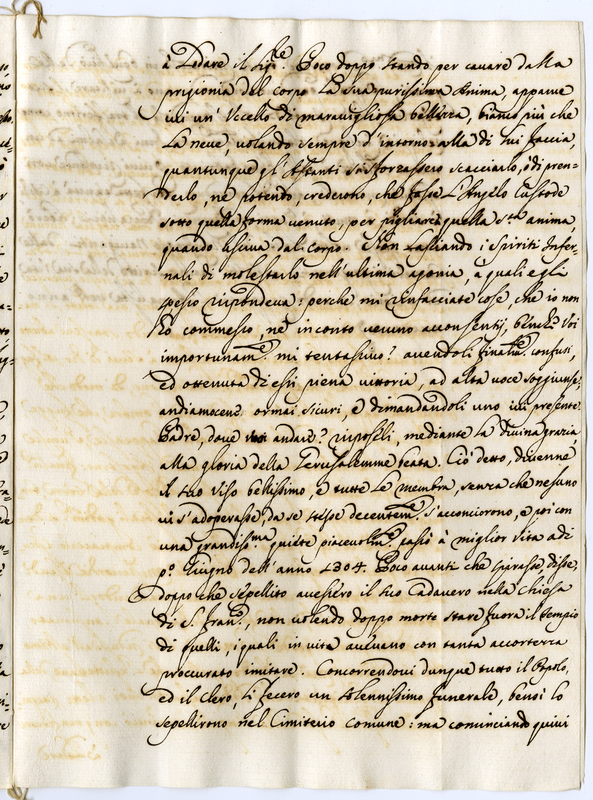 à Lodare il Sig.re Poco doppo stando per cauare dalla
prigionia del corpo la sua purissima Anima, apparue
iui un' Vccello di marauigliosa bellezza, bianco più che
la neue, uolando sempre d'intorno alla di lui faccia,
quantunque gl' Astanti si sforzassero scacciarlo, ò di pren-
derlo, nè potendo, crederono, che fosse L'Angelo Custode
sotto quella forma uenuto, per pigliare quella S.ta anima
quando usciua dal corpo. Non lasciando i Spiriti Infer-
nali di molestarlo nell'ultima agonia, à quali egli
spesso rispondeua: perche mi rinfacciate cose, che io non
hò commesso, nè in conto ueruno acconsentij, benche Voi
importunam.te mi tentassiuo? auendoli finalm.te confusi,
ed ottenuta di essi piena uittoria, ad alta uoce soggiunse:
andiamocene ormai sicuri, e dimandandoli uno iui presente
Padre, doue andare? rispose li, mediante la diuina grazia,
alla gloria della Gerusalemme beata. Ciò detto, diuenne
il suo Viso bellissimo, e tutte le membra, senza che nessuno
ui s'adoperasse, da se stesse decentem.te s'acconciorono, e poi con
una grandiss.ma quiete piaceuolm.te passò à miglior Vita adi
p.o Giugno dell'anno 1304. Poco auanti che spirasse, disse,
doppo che sepellito auessero il suo Cadauero nella Chiesa
di S. Fran.co, non uolendo doppo morte stare fuora il Tempio
di quelli, i quali in uita aueuano con tanta accortezza
procurato imitare. Concorrendoui dunque tutto il Popolo,
ed il Clero, li fecero un solennissimo funerale, bensì lo
sepellirono nel Cimiterio comune: ma cominciando quiui